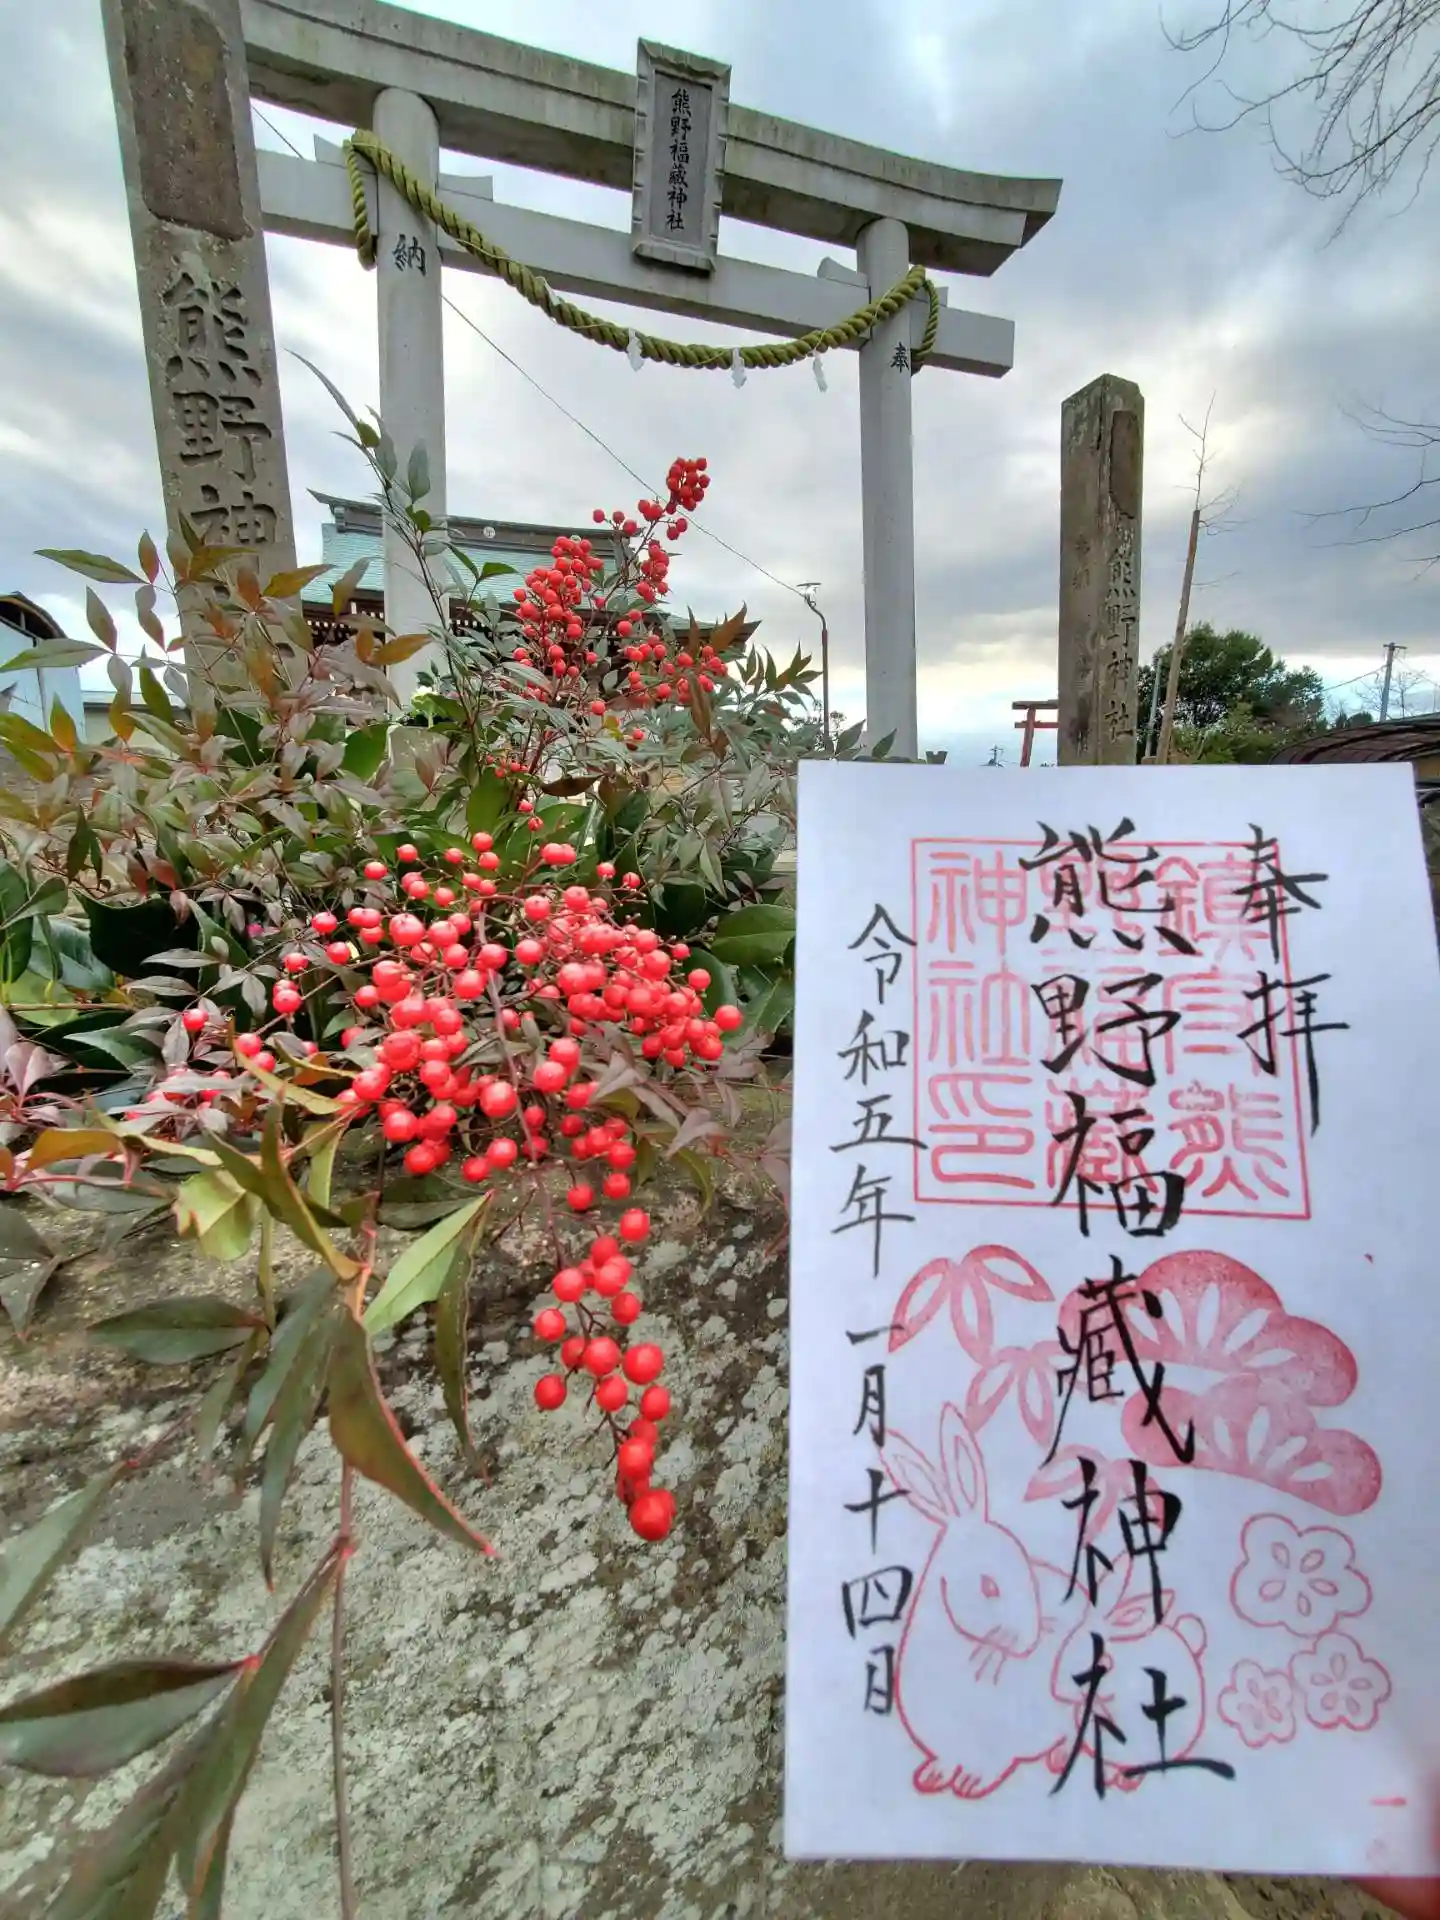 熊野福藏神社
納
奉
熊野神
熊野神社
奉拝
熊野福蔵神社
令和五年一月十四日
神社印